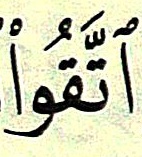 ٱتَّقُوا۟